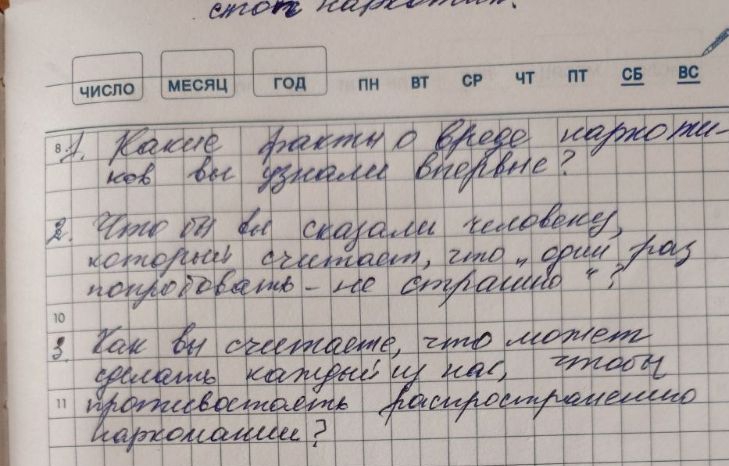 стоп наркотик.
ЧИСЛО МЕСЯЦ ГОД ПН ВТ СР ЧТ ПТ СБ ВС
8 1. Какие факты о вреде наркоти-
ков вы узнали впервые?
2. Что бы вы сказали человеку,
который считает, что „один раз
попробовать - не страшно“?
10
3. Как вы считаете, что может
сделать каждый из нас, чтобы
11 противостоять распространению
наркомании?